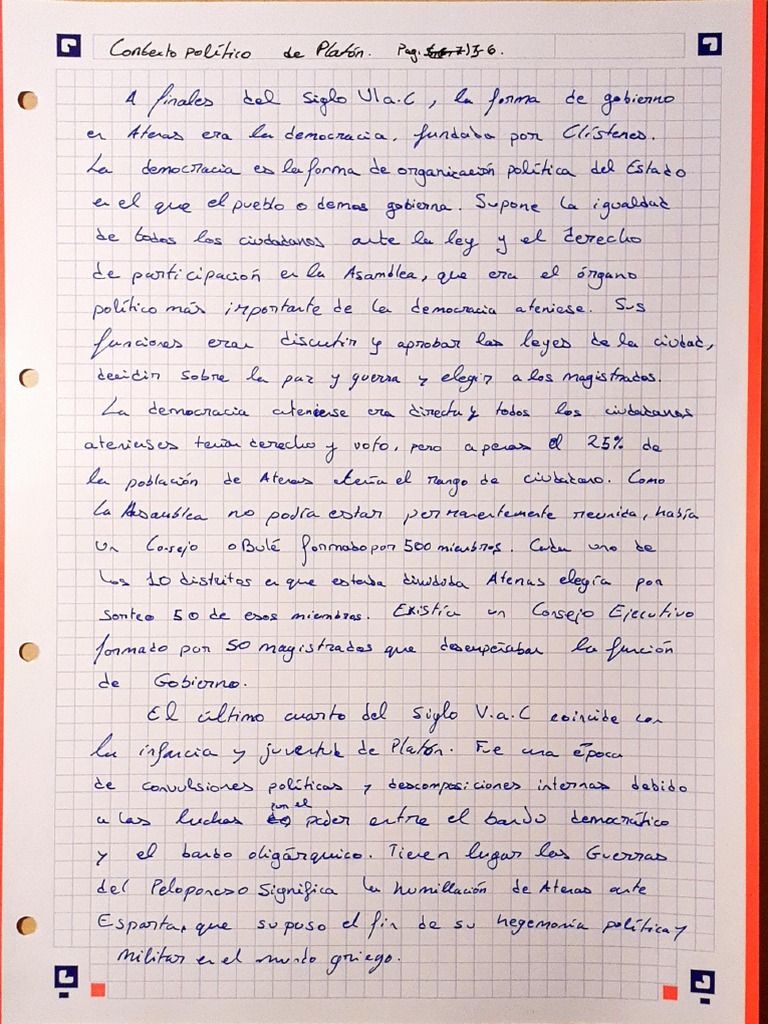 Contexto político de Platón. Pag. 3-6.
A finales del Siglo VI a.C, la forma de gobierno
en Atenas era la democracia, fundada por Clístenes.
La democracia es la forma de organización política del Estado
en el que el pueblo o demos gobierna. Supone la igualdad
de todos los ciudadanos ante la ley y el derecho
de participación en la Asamblea, que era el órgano
político más importante de la democracia ateniese. Sus
funciones eran discutir y aprobar las leyes de la ciudad,
decidir sobre la paz y guerra y elegir a los magistrados.
La democracia ateniense era directa y todos los ciudadanos
atenienses tenían derecho y voto, pero apenas el 25% de
la población de Atenas tenía el rango de ciudadano. Como
la Asamblea no podía estar permanentemente reunida, había
un Consejo o Bulé formado por 500 miembros. Cada uno de
los 10 distritos en que estaba dividida Atenas elegía por
sorteo 50 de esos miembros. Existía un Consejo Ejecutivo
formado por 50 magistrados que desempeñaban la función
de Gobierno.
El último cuarto del siglo V.a.C coincide con
la infancia y juventud de Platón. Fue una época
de convulsiones políticas y descomposiciones internas debido
a las luchas por el poder entre el bando democrático
y el bando oligárquico. Tienen lugar las Guerras
del Peloponeso significa la humillación de Atenas ante
Esparta, que supuso el fin de su hegemonía política y
militar en el mundo griego.